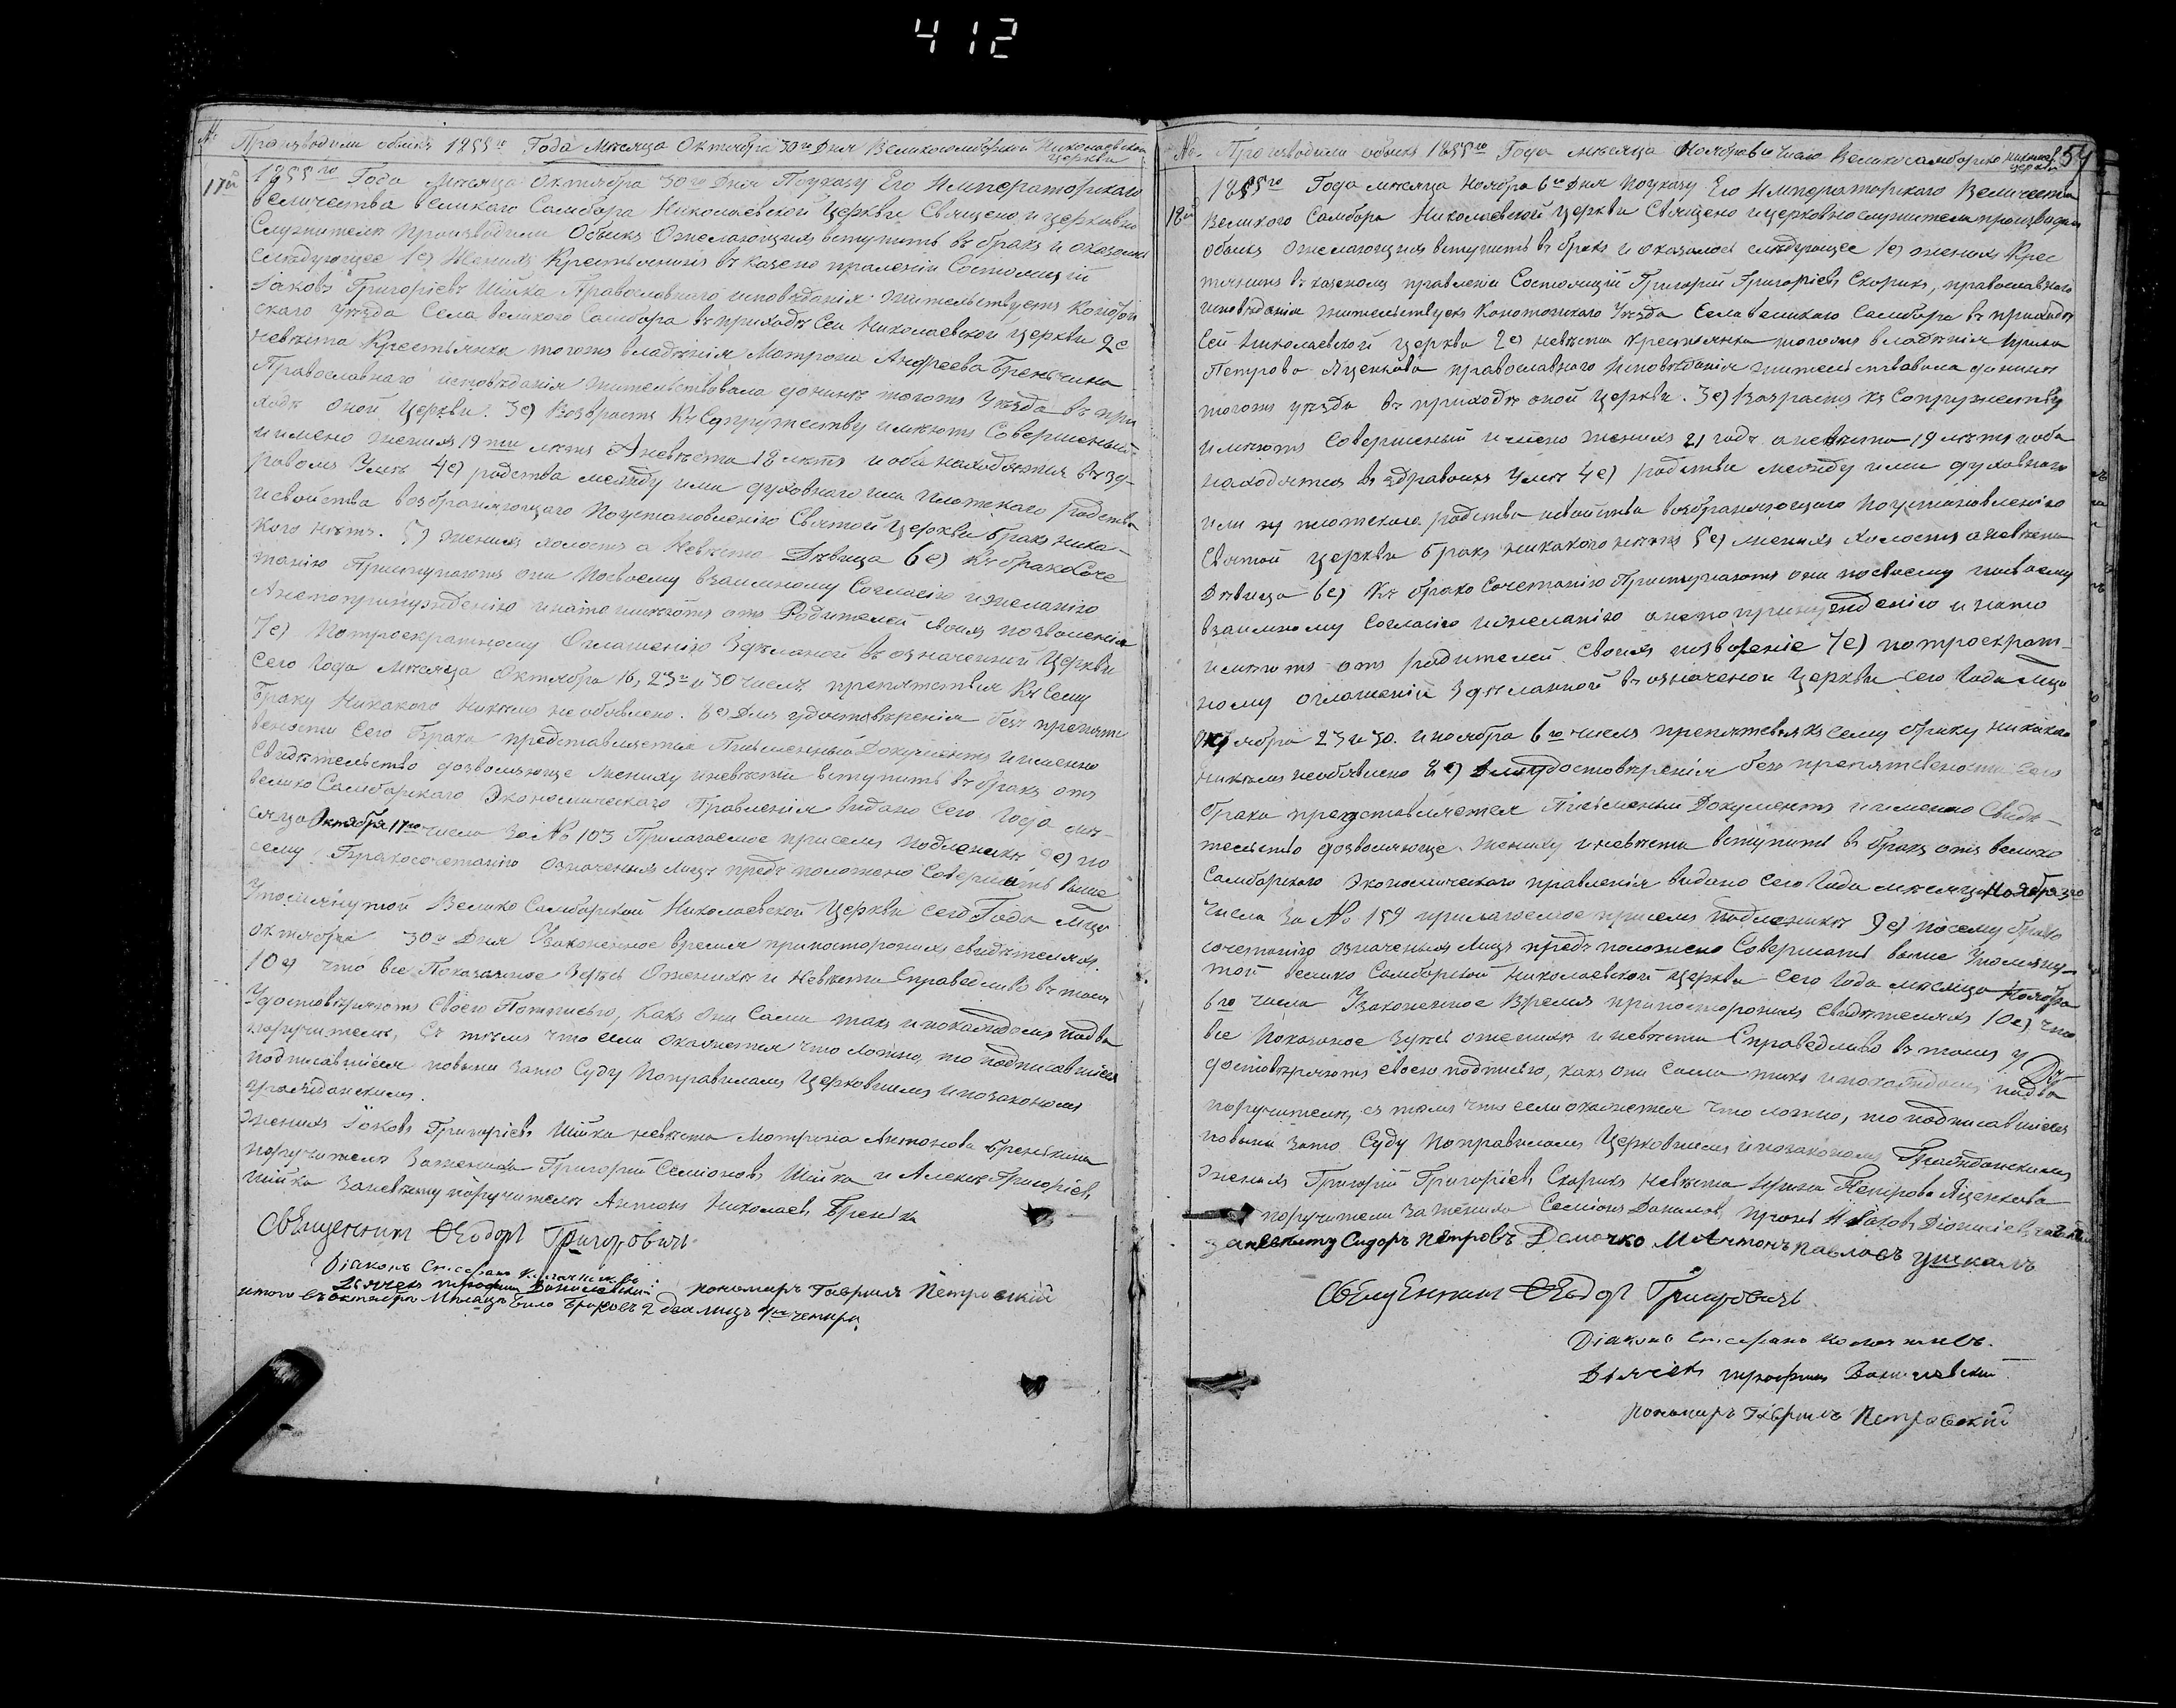 412
№ Производили обыскъ 1855го Года Месяца Октября 30го Дня Великосамборской Николаевской
церкви
17й 1855го Года Месяца Октября 30го Дня Поуказу Его Императорскаго
величества великого Самбора Николаевской Церкви Священо и церковно
Служители Производили Обыскъ Ожелающихъ вступить въ бракъ и оказалось
следующее 1е) Женихъ Крестьянинъ въ казено правленіи Состоящій
Іаковъ Григоріевъ Шійка Православнаго исповѣданія жительствуетъ Конотоп
скаго уѣзда Села великого Самбора въ приходѣ Сей Николаевской церкви 2е
невѣста Крестьянка тогожъ владѣнія Матрона Андреева Бренчина
Православнаго исповѣданія жительствовала донинѣ тогожъ Уѣзда въ при
ходѣ оной Церкви. 3е) Возврастъ Къ Супружеству имѣютъ Совершенный
и имено женихъ 19ти лѣтъ А невѣста 18 лѣтъ и оба находятся въ зд-
равомъ Умѣ 4е) родства между ими духовнаго или плотскаго родства
и свойства возбраняющаго Поустановленію Святой Церкви бракъ ника-
кого нѣтъ. 5) женихъ холостъ а Невѣста Дѣвица 6е) Къ бракосоче
танію Приступаютъ они Посвоему взаимному Согласію и желанію
Анепопринужденію и нато имѣютъ отъ Родителей своихъ позволенія
7е) Потроекратному Оглашенію Здѣланой въ означеной Церкви
Сего Года Месяца Октября 16, 23го и 30 числъ препятствія Къ Сему
Браку Никакого Никѣмъ не обявлено. 8е Для удостовѣренія безъ препятс
вености Сего брака представляется Писменный Документъ и именно
Свидѣтельство дозволяюще Жениху и невѣсти вступить въ бракъ отъ
велико Самборскаго Экономическаго Правленія видано Сего Года мѣ-
сяца Октября 17го числа За № 103 Прилагаемое присемъ подленикѣ 9е) по
сему Бракосочетанію означеныхъ Лицъ предъположено Совершить выше
Упомянутой Велико Самборской Николаевской Церкви Сего Года Мца
октября 30го Дня Узаконенное время припосторонихъ свидѣтеляхъ.
10е) Что все Показанное Здѣсь Ожених и Невѣсти Справедливо въ томъ
Удостовѣряютъ Своею Потписью, Какъ они Сами такъ и покаждомъ Подва
поручители, Съ тѣмъ что если окажется что ложно, то подписавшіеся
подписавшіеся повыни зато Суду Поправиламъ Церковнымъ и позаконамъ
гражданскимъ.
Женихъ Іаковъ Григоріевъ Шійка невѣста Матрина Антонова Бренькина
поручители Зажениха Григорій Семіоновъ Шійка и Алексѣ Григоріев
Шійка Заневѣсту поручители Антонъ Николаевъ Бренька
Священникъ Ѳеодоръ Григоровичъ
Діаконъ Стефанъ
Дьячекъ Трофимъ Данилевскій
пономаръ Гавріилъ Петровскій
итого въ октябрѣ Месяцѣ Било Браковъ 2 два лицъ 4ре четири
№ Производили обыскъ 1855го Года месяца Ноября 6го Число Великосамборско Никола 54
церкви
18й 1855го Года месяца Ноября 6го Дня Поуказу Его Императорскаго Величества
Великого Самбора Николаевской Церкви Священо и церковнослужители производили
обыскъ Ожелающихъ вступить въ бракъ и оказалось слѣдующее 1е) женихъ Крес
тянинъ въ казеномъ правленіи Состоящій Григорій Григоріевъ Скорикъ, православнаго
исповѣданія жительствуетъ Конотопскаго Уѣзда Села великаго Самбора въ приходѣ
Сей Николаевской церкви 2е) невѣста крестьянка тогожъ владѣнія Ирина
Петрова Яценкова православнаго Исповѣданія жительствовала донинѣ
тогожъ уѣзда въ приходѣ оной Церкви. 3е) возрастъ къ Сопружеству
имѣютъ Совершеный и имено женихъ 21 годъ а невѣста 19 лѣтъ и оба
находятся въ здравомъ Умѣ 4е) родства между ими духовнаго
или плотскаго родства и свойства возбраняющаго Поустановленію
Святой церкви бракъ никакого нѣтъ 5е) женихъ холостъ а невѣста
Дѣвица 6е) Къ брако Сочетанію Приступаютъ они посвоему посвоему
взаимному Согласію и желанію анепопринужденію и нато
имѣютъ отъ родителей своихъ позволеніе 7е) потроекрат-
ному оглашеніи здѣланной въ означеной Церкви Сего Года Мца
Октября 23 и 30. и ноября 6го числъ препятствія къ сему браку никакого
никѣмъ необявлено 8е) Для удостовѣренія безъ препятсвености Сего
брака представляется Писменый Документъ и именно Свидѣ-
тельство дозволяюще Жениху и невѣсти вступить въ бракъ отъ велико
Самборскаго Экономическаго правленія видано Сего Года месяца Ноября 3го
числа За № 159 прилагаемое присемъ подленикѣ 9е) посему брако
сочетанію означеныхъ Лицъ предъположено Совершить выше Упомяну-
той велико Самборской Николаевской церкви Сего Года месяца Ноября
6го числа Узаконенное Время припосторонихъ Свидѣтеляхъ 10е) что
все Показаное Здѣсь ожених и невѣсти Справедливо въ томъ У
достовѣряютъ своею подписью, какъ они Сами такъ и покаждомъ подва
поручители, съ тѣмъ что если окажется что ложно, то подписавшіеся
повыни зато Суду Поправиламъ Церковнымъ и позаконамъ Гражданскимъ
Женихъ Григорій Григоріевъ Скорикъ Невѣста Ирина Петрова Яценкова
поручители За жениха Семіонъ Даниловъ И Іаковъ Діонисіевъ
За невѣсту Сидоръ Петровъ Демочко И Антонъ Павловъ
Священникъ Ѳеодоръ Григоровичъ
Діаконъ Стефанъ
Дьячекъ Трофимъ Данилевскій
пономаръ Гавріилъ Петровскій